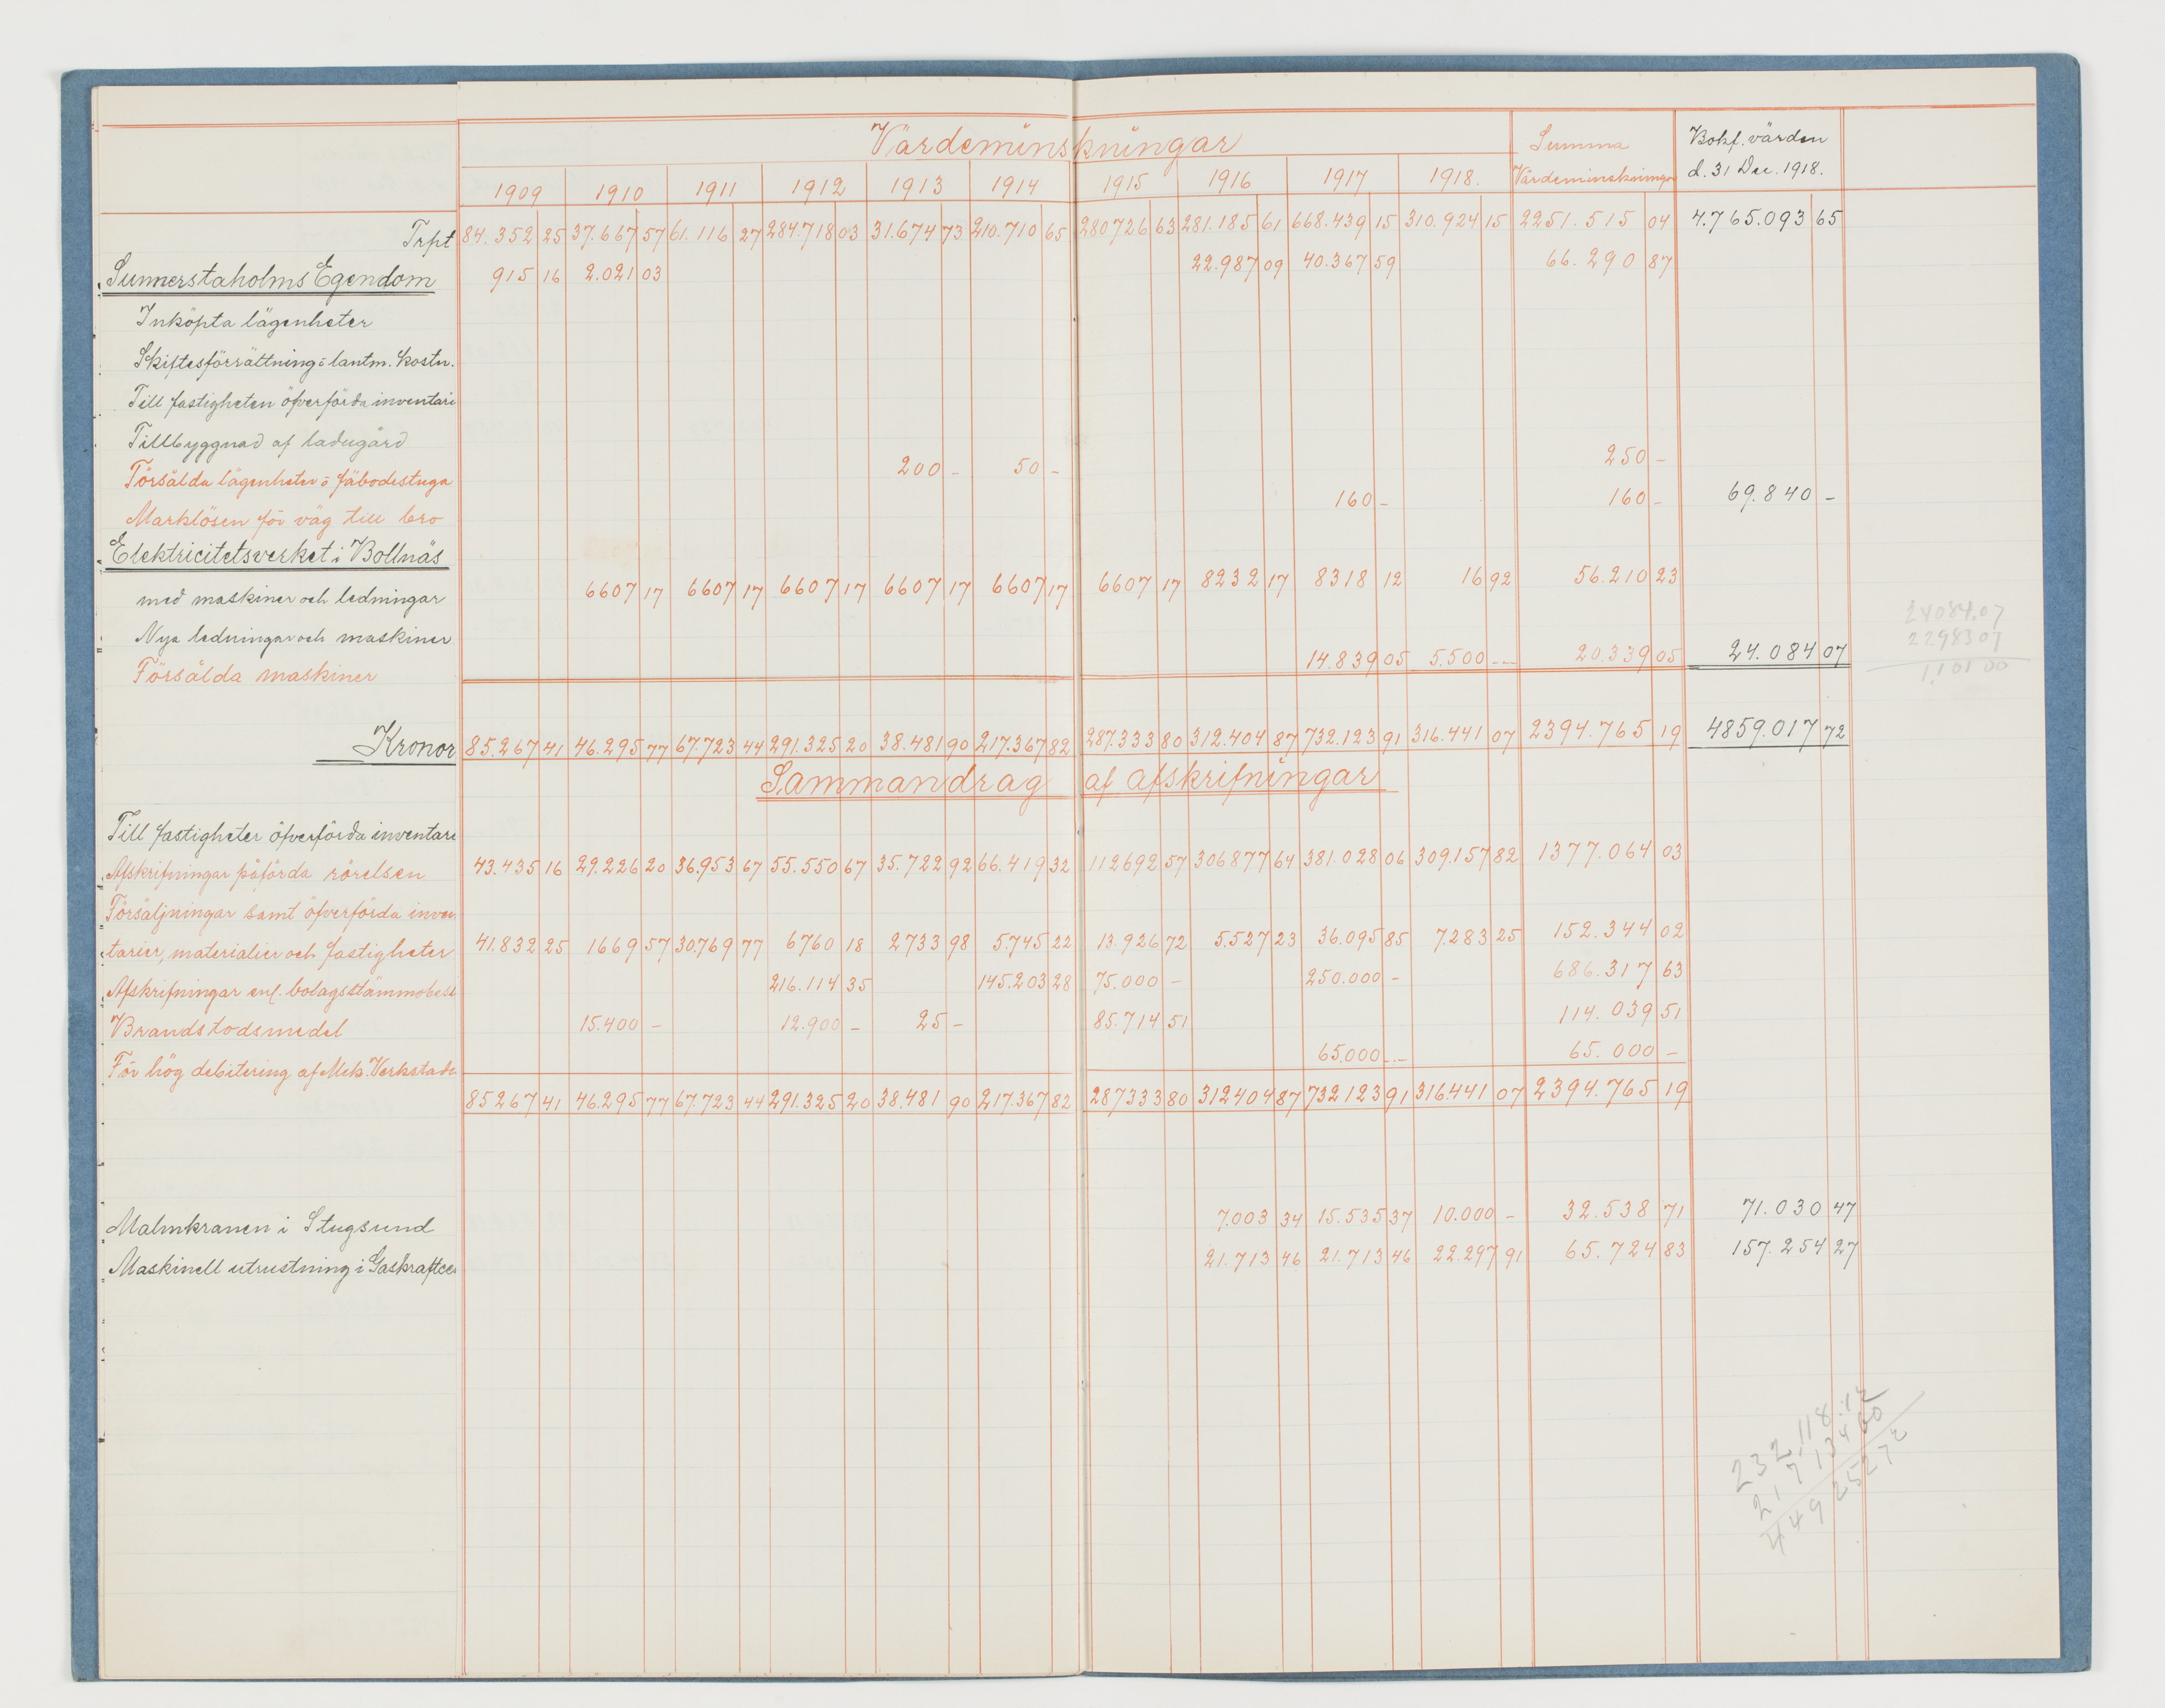 Värdeminskningar Summa Bokf. värden
1909 1910 1911 1912 1913 1914 1915 1916 1917 1918. Värdeminskningar d. 31 Dec. 1918.
Trpt 84.352 25 37.667 57 61.116 27 284.718 03 31.674 73 210.710 65 280726 63 281.185 61 668.439 15 310.924 15 2251.515 04 4.765.093 65
Sunnerstaholms Egendom 915 16 2.021 03 22.987 09 40.367 59 66.290 87
Inköpta lägenheter
Skiftesförrättning o lantm. kostn.
Till fastigheten öfverförda inventari
Tillbyggnad af ladugård
Försålda lägenheter o fäbodestuga 200 - 50 - 250 -
Marklösen för väg till bro 160 - 160 - 69.840 -
Elektricitetsverket i Bollnäs
med maskiner och ledningar 6607 17 6607 17 6607 17 6607 17 6607 17 6607 17 8232 17 8318 12 16 92 56.210 23
Nya ledningar och maskiner
Försålda maskiner 14.839 05 5.500 -- 20.339 05 24.084 07
24084.07
22983 07
1,101 00
Kronor 85.267 41 46.295 77 67.723 44 291.325 20 38.481 90 217.367 82 287.333 80 312.404 87 732.123 91 316.441 07 2394.765 19 4859.017 72
Sammandrag af afskrifningar
Till fastigheter öfverförda inventari
Afskrifningar påförda rörelsen 43.435 16 29.226 20 36.953 67 55.550 67 35.722 92 66.419 32 112692 57 306877 64 381.028 06 309.157 82 1377.064 03
Försäljningar samt öfverförda inven
tarier, materialier och fastigheter 41.832 25 1669 57 30.769 77 6760 18 2733 98 5.745 22 13.926 72 5.527 23 36.095 85 7.283 25 152.344 02
Afskrifningar enl. bolagsstämmobesl 216.114 35 145.203 28 75.000 - 250.000 - 686.317 63
Brandstodsmedel 15.400 - 12.900 - 25 - 85.714 51 114.039 51
För hög debitering af Mek. Verkstade 65.000 -- 65.000 -
85267 41 46.295 77 67.723 44 291.325 20 38.481 90 217.367 82 287333 80 312404 87 732123 91 316.441 07 2394.765 19
Malmkranen i Stugsund 7.003 34 15.535 37 10.000 - 32.538 71 71.030 47
Maskinell utrustning i Gaskraftcen 21.713 46 21.713 46 22.297 91 65.724 83 157.254 27
232.118.12
217134 60
449 252 72